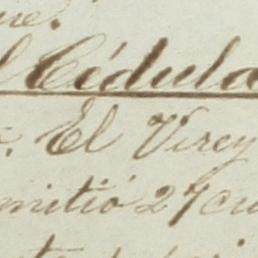 l Cédula
El Virey
mitió 27 cu